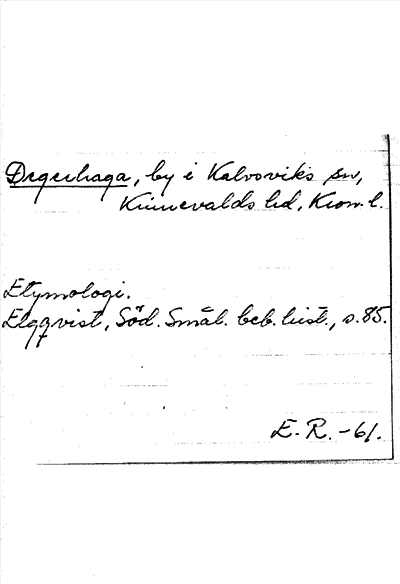 Degerhaga, by i Kalvsviks sn,
Kinnevalds hd, Kron. l.
Etymologi.
Elgqvist, Söd. Smål. beb. hist., s. 85.
E. R. -61.